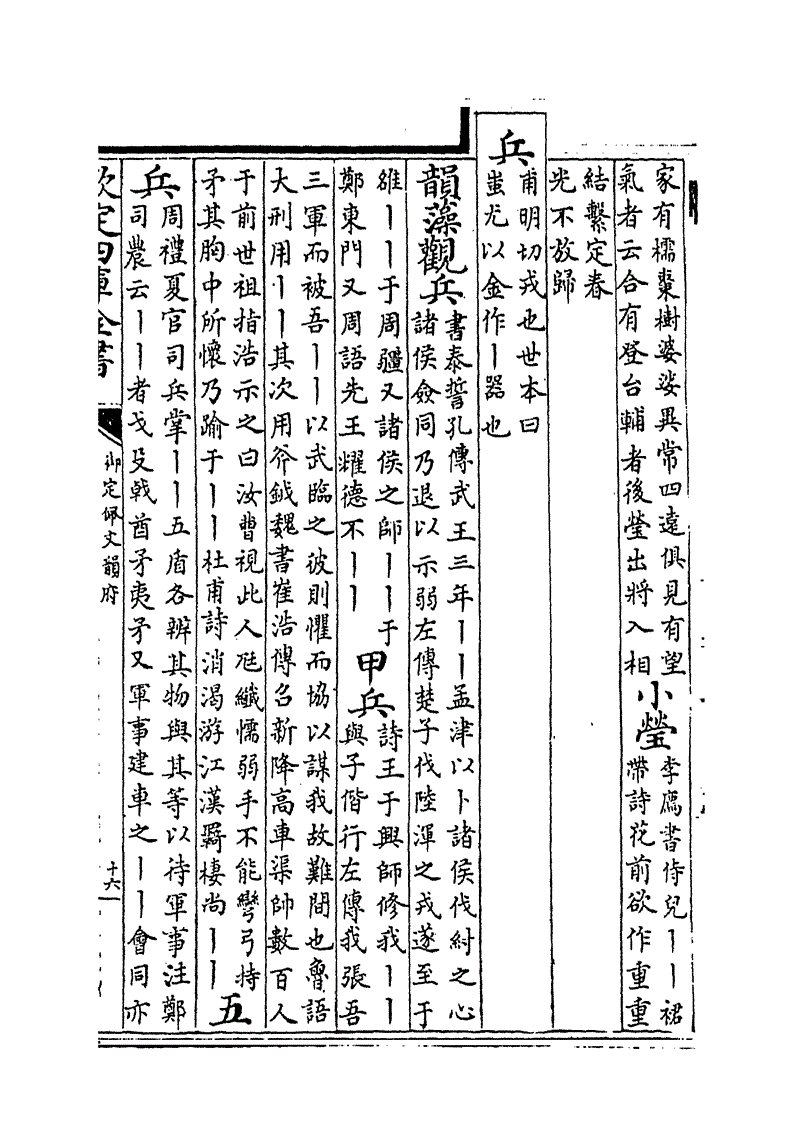 家有檽棗樹婆娑異常四遠俱見有望
氣者云合有登台輔者後瑩出將入相
小瑩
李廌書侍兒丨丨裙
帶詩花前欲作重重
結繫定春
光不放歸
兵
甫明切戎也世本曰
蚩尤以金作丨器也
韻藻
觀兵
書泰誓孔傳武王三年丨丨孟津以卜諸侯伐紂之心
諸侯僉同乃退以示弱左傳楚子伐陸渾之戎遂至于
雒丨丨于周疆又諸侯之師丨丨于
鄭東門又周語先王耀德不丨丨
甲兵
詩王于興師修我丨丨
與子偕行左傳我張吾
三軍而被吾丨丨以武臨之彼則懼而協以謀我故難間也魯語
大刑用丨丨其次用斧鉞魏書崔浩傳召新降高車渠帥數百人
于前世祖指浩示之曰汝曹視此人尫纖懦弱手不能彎弓持
矛其胸中所懷乃踰于丨丨杜甫詩消渴游江漢羇棲尚丨丨
五
兵
周禮夏官司兵掌丨丨五盾各辨其物與其等以待軍事注鄭
司農云丨丨者戈殳戟酋矛夷矛又軍事建車之丨丨會同亦
欽定四庫全書
御定佩文韻府
十六